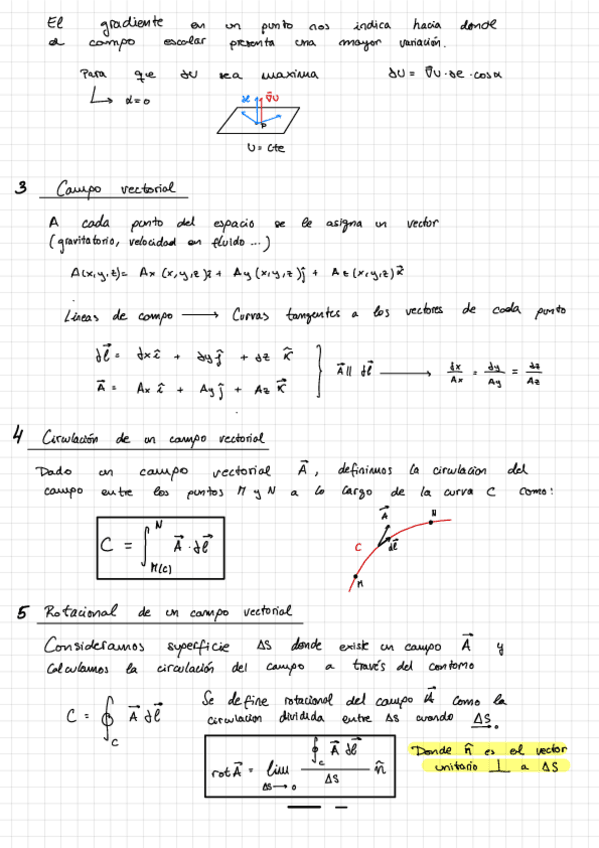 El gradiente en un punto nos indica hacia donde
el campo escolar presenta una mayor variación.
Para que dU sea maxima dU = ∇⃗U · de · cos α
↳ α=0
dl⃗ ∇⃗U
P
U = cte
3 Campo vectorial
A cada punto del espacio se le asigna un vector
(gravitatorio, velocidad en fluido ...)
A(x,y,z)= Ax (x,y,z)î + Ay (x,y,z)ĵ + Az (x,y,z)k⃗
Lineas de campo ⟶ Curvas tangentes a los vectores de cada punto
dl⃗ = dx î + dy ĵ + dz k̂
A⃗ = Ax î + Ay ĵ + Az k⃗
} A⃗ || dl⃗ ⟶ dx/Ax = dy/Ay = dz/Az
4 Circulación de un campo vectorial
Dado un campo vectorial A⃗, definimos la circulacion del
campo entre los puntos M y N a lo largo de la curva C como:
C = ∫_M(c)^N A⃗ · dl⃗
A⃗ N
C dl⃗
M
5 Rotacional de un campo vectorial
Consideramos superficie ΔS donde existe un campo A⃗ y
Calculamos la circulación del campo a través del contorno
C = ∮_C A⃗ dl⃗
Se define rotacional del campo A⃗ como la
circulacion dividida entre ΔS cuando ΔS→0
rot A⃗ = lim_ΔS→0 (∮_c A⃗ dl⃗)/ΔS n̂
Donde n̂ es el vector
unitario ⊥ a ΔS